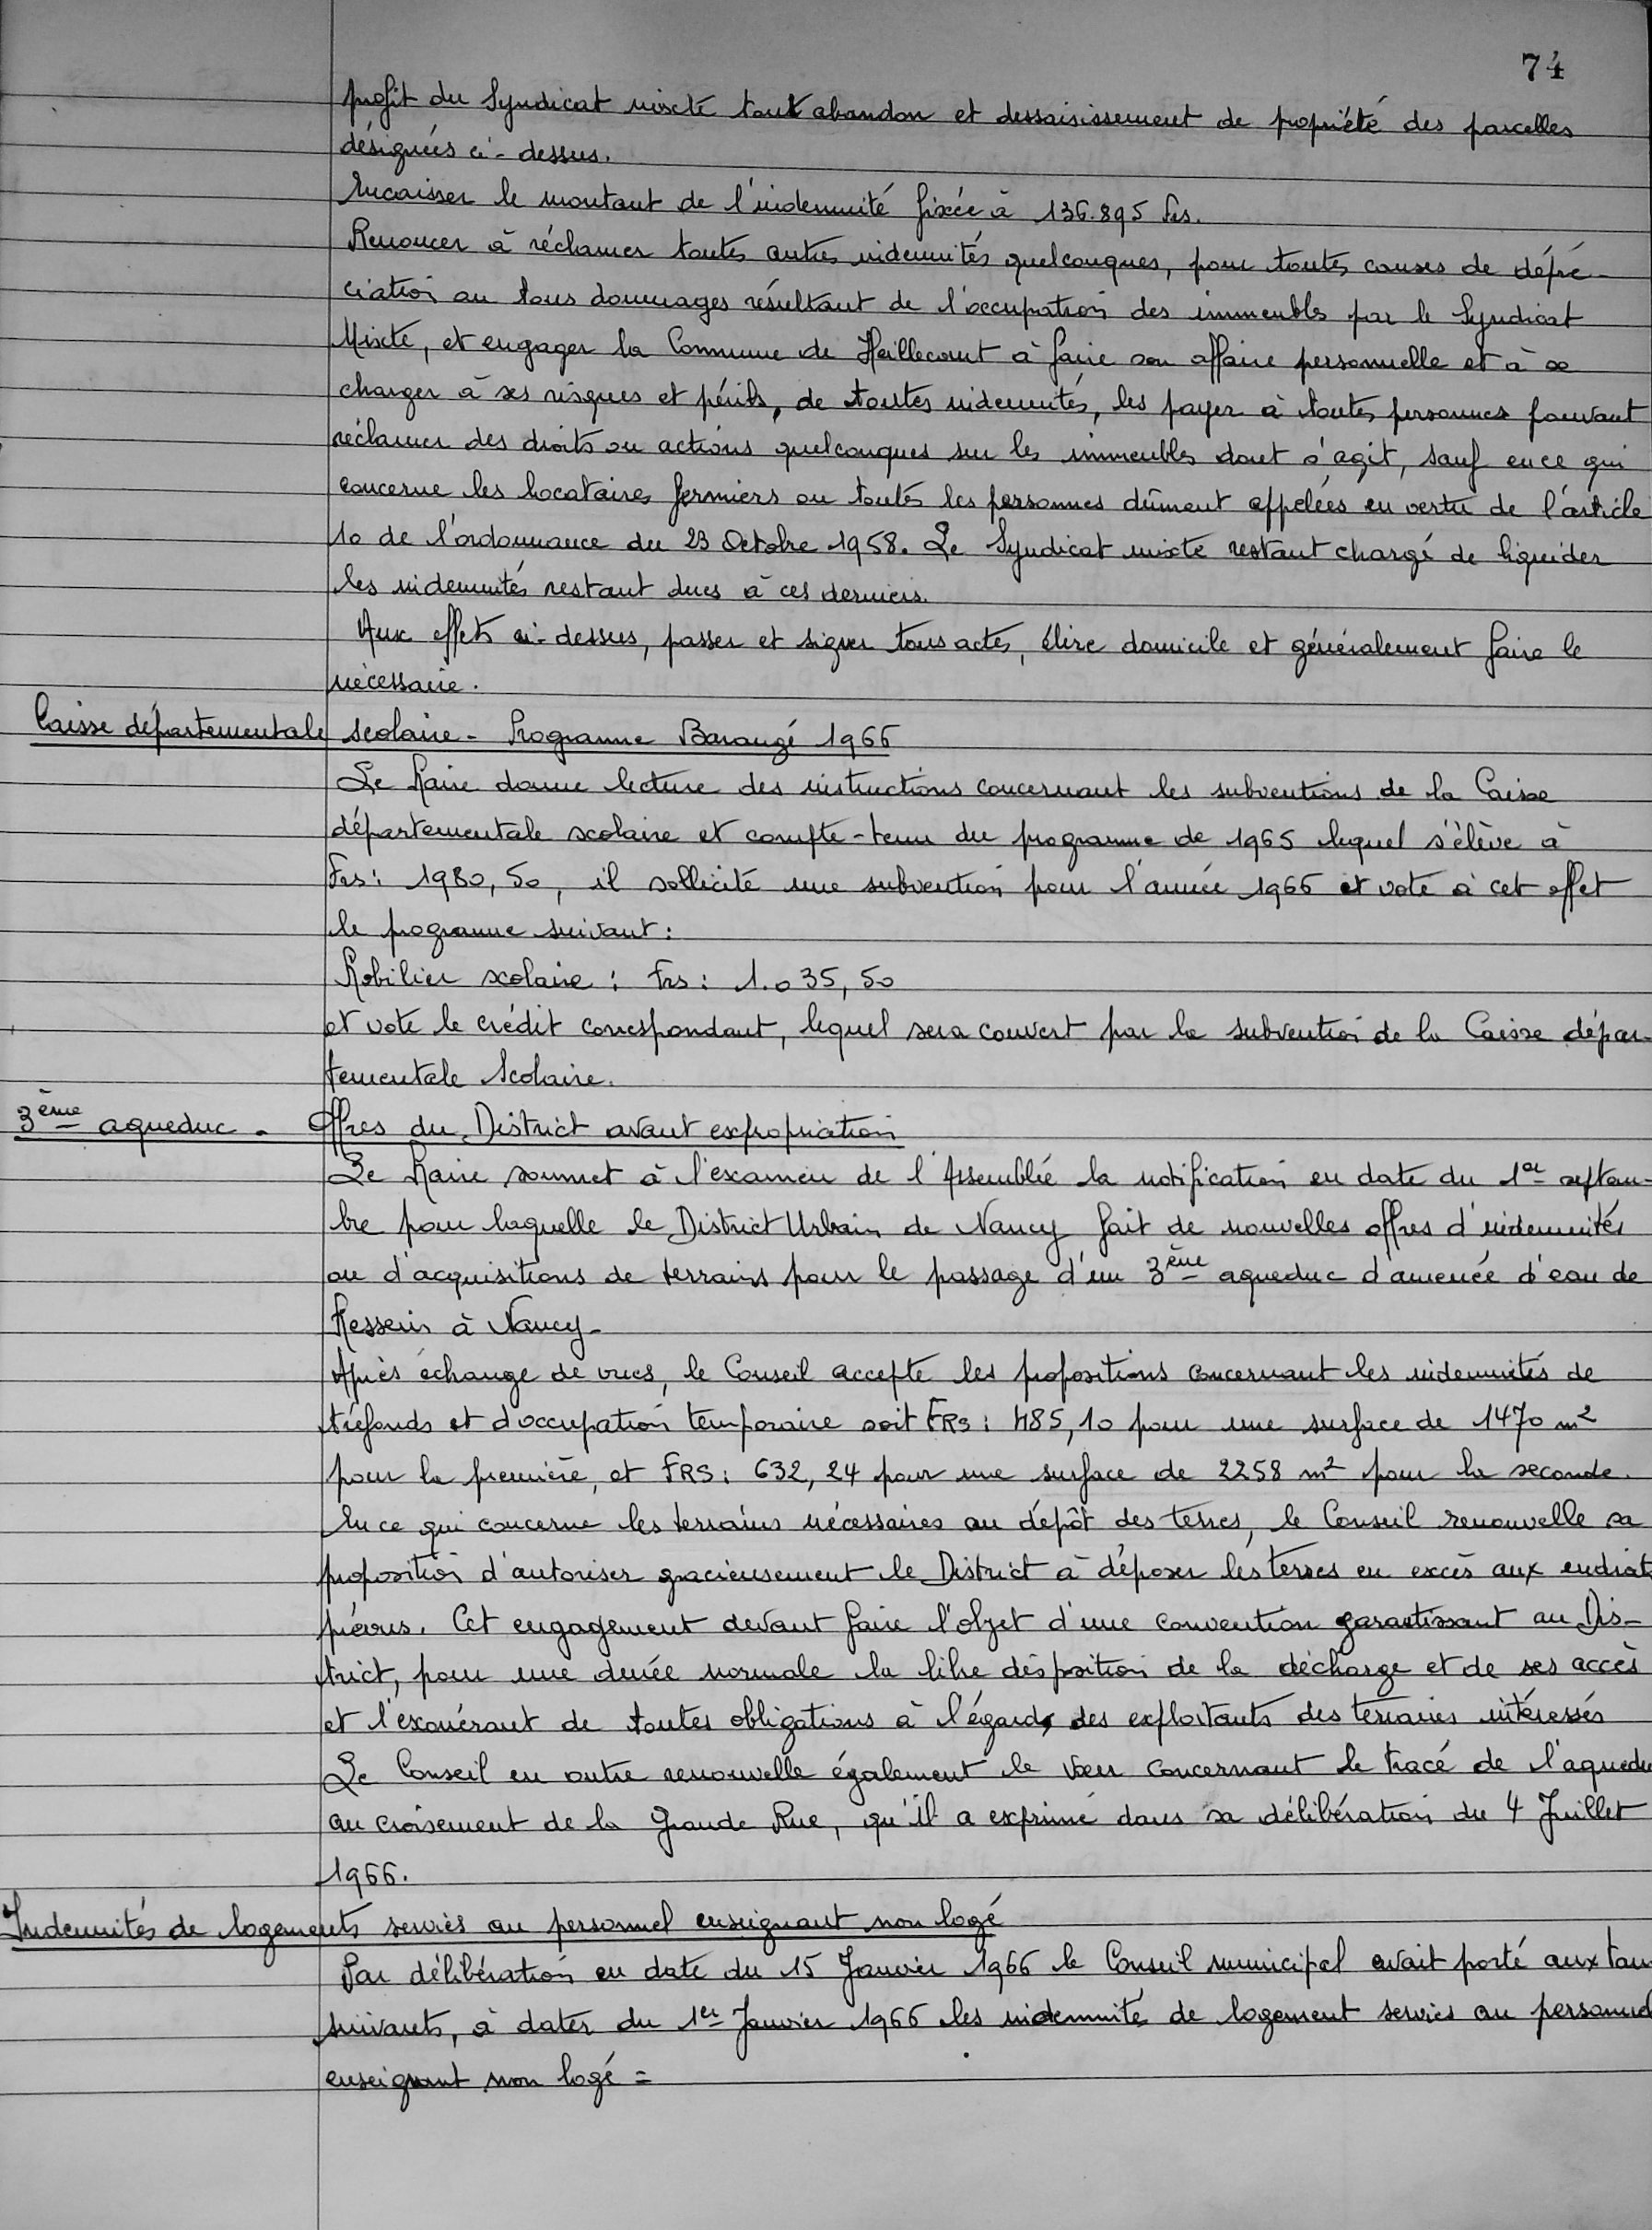 74
profit du Syndicat mixte tout abandon et dessaisissement de propriété des parcelles
désignées ci-dessus.
Encaisser le montant de l'indemnité fixée à 136.895 frs.
Renoncer à réclamer toutes autres indemnités quelconques, pour toutes causes de dépré-
ciation ou tous dommages résultant de l'occupation des immeubles par le Syndicat
Mixte, et engager la Commune de Heillecourt à faire son affaire personnelle et à se
charger à ses risques et périls, de toutes indemnités, les payer à toutes personnes pouvant
réclamer des droits ou actions quelconques sur les immeubles dont s'agit, sauf en ce qui
concerne les locataires fermiers ou toutes les personnes dûment appelées en vertu de l'article
10 de l'ordonnance du 23 Octobre 1958. Le Syndicat mixte restant chargé de liquider
les indemnités restant dues à ces derniers.
Aux effets ci-dessus, passer et signer tous actes, élire domicile et généralement faire le
nécessaire.
Caisse départementale scolaire - Programme Barangé 1966
Le Maire donne lecture des instructions concernant les subventions de la Caisse
départementale scolaire et compte-tenu du programme de 1965 lequel s'élève à
Frs: 1980,50, il sollicite une subvention pour l'année 1966 et vote à cet effet
le programme suivant:
Mobilier scolaire : Frs : 1.035,50
et vote le crédit correspondant, lequel sera couvert par la subvention de la Caisse dépar-
tementale Scolaire.
3ème aqueduc. Offres du District avant expropriation
Le Maire soumet à l'examen de l'Assemblée la notification en date du 1er septem-
bre pour laquelle le District Urbain de Nancy fait de nouvelles offres d'indemnités
ou d'acquisitions de terrains pour le passage d'un 3ème aqueduc d'amenée d'eau de
Messein à Nancy-
Après échange de vues, le Conseil accepte les propositions concernant les indemnités de
tréfonds et d'occupation temporaire soit FRS: 485,10 pour une surface de 1470 m²
pour la première, et FRS: 632,24 pour une surface de 2258 m² pour la seconde.
En ce qui concerne les terrains nécessaires au dépôt des terres, le Conseil renouvelle sa
proposition d'autoriser gracieusement le District à déposer les terres en excès aux endroits
prévus. Cet engagement devant faire l'objet d'une convention garantissant au Dis-
trict, pour une durée normale la libre disposition de la décharge et de ses accès
et l'exonérant de toutes obligations à l'égard, des exploitants des terrains intéressés
Le Conseil en outre renouvelle également le vœu concernant le tracé de l'aquedu
au croisement de la Grande Rue, qu'il a exprimé dans sa délibération du 4 Juillet
1966.
Indemnités de logements servies au personnel enseignant non logé
Par délibération en date du 15 Janvier 1966 le Conseil municipal avait porté aux tau
suivants, à dater du 1er Janvier 1966 les indemnités de logement servies au personnel
enseignant non logé =